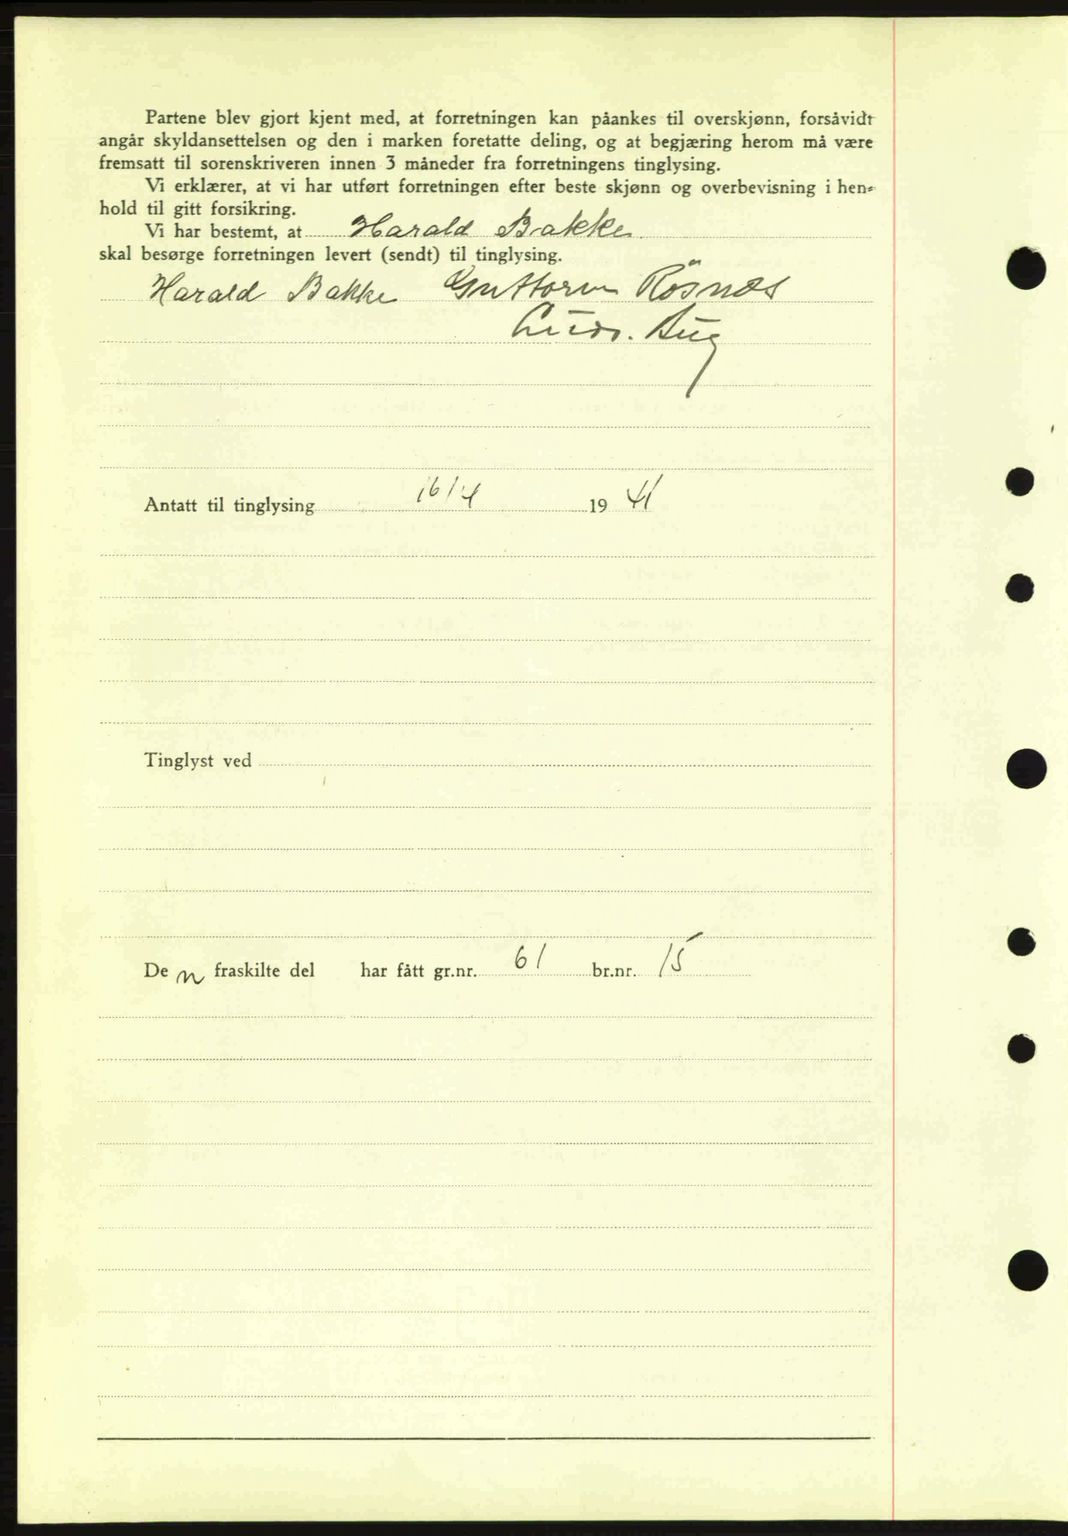 Partene blev gjort kjent med, at forretningen kan påankes til overskjønn, forsåvidt
angår skyldansettelsen og den i marken foretatte deling, og at begjæring herom må være
fremsatt til sorenskriveren innen 3 måneder fra forretningens tinglysing.
Vi erklærer, at vi har utført forretningen efter beste skjønn og overbevisning i hen-
hold til gitt forsikring.
Vi har bestemt, at Harald Bakke
skal besørge forretningen levert (sendt) til tinglysing.
Harald Bakke Guttorm Rösnæs
Antatt til tinglysing 16/4 19 41
Tinglyst ved
De n fraskilte del har fått gr.nr. 61 br.nr. 15